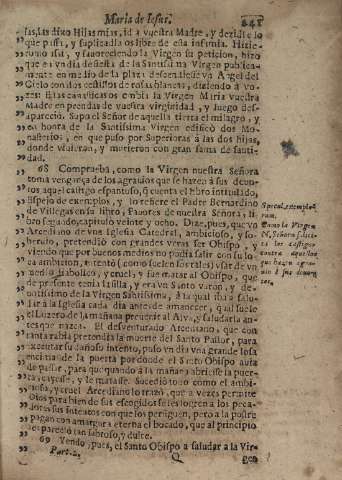 Maria de Iesus. 241
sas, las dixo Hijas mias, id a vuestra Madre, y dezidle lo
que passa, y suplicadla os libre de esta infamia. Hizie-
ronlo assi, y favoreciendo la Virgen su peticion, hizo
que en vn dia de fiesta de la Santissima Virgen publica-
mente en medio de la plaza descendiesse vn Angel del
Cielo con dos cestillos de rosas blancas, diziendo à vo-
zes: estas castissimas embia la Virgen Maria vuestra
Madre en prendas de vuestra virginidad, y luego des-
apareciò. Supo el Señor de aquella tierra el milagro, y
en honra de la Santissima Virgen edificò dos Mo-
nasterios, en que puso por Superioras à las dos hijas,
donde vivieron, y murieron con gran fama de santi-
dad.
68 Comprueba, como la Virgen nuestra Señora
toma vengança de los agravios que se hazen à sus devo-
tos, aquel castigo espantoso, q̃ cuenta el libro intitulado,
Espejo de exemplos, y lo refiere el Padre Bernardino
de Villegas en su libro, Favores de nuestra Señora, li-
bro segundo, capitulo veinte y ocho. Dize, pues, que vn
Arcediano de vna Iglesia Catedral, ambicioso, y so-
berbio, pretendiò con grandes veras ser Obispo, y
viendo que por buenos medios no podia salir con su lo-
ca ambicion, intentò (como suelen los tales) vsar de vn
medio diabolico, y cruel, y fue matar al Obispo, que
de presente tenia la silla, y era vn Santo varon, y de-
votissimo de la Virgen Santissima, à la qual iba a salu-
dar à la Iglesia cada dia antes de amanecer, qual suele
el Luzero de la mañana prevenir al Alva, y saludarla an-
tes que nazca. El desventurado Arcediano, que con
tanta rabia pretendia la muerte del Santo Pastor, para
executar su dañoso intento, puso vn dia vna grande losa
encima de la puerta por donde el Santo Obispo avia
de passar, para que quando à la mañana abriesse la puer-
ta, cayesse, y le matasse. Sucediò todo como el ambi-
cioso, y cruel Arcediano lo trazò, que a vezes permite
Dios para bien de sus escogidos se les logren a los peca-
dores sus intentos con que los persiguen, pero a la postre
pagan con amargura eterna el bocado, que al principio
les pareciò tan sabroso, y dulce.
69 Yendo, pues, el Santo Obispo a saludar a la Vir-
Part. 2. Q gen
Specul. exemplo-
rum.
Como la Virgen
N. Señora
los castigos
contra aquellos
que hazen agra-
vio à sus devo-
tos.